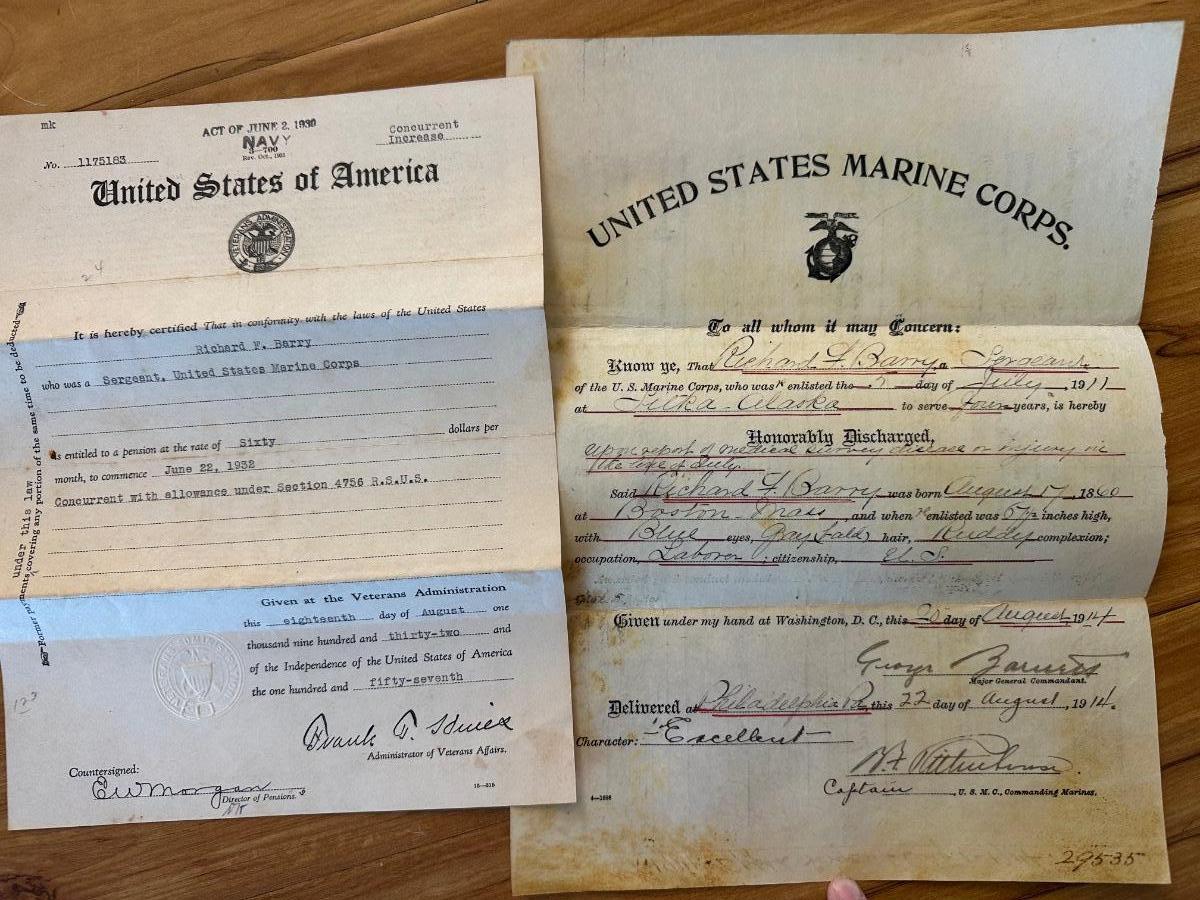 mk
ACT OF JUNE 2, 1930
Concurrent
Increase
NAVY
3—700
Rev. Oct., 1931
No. 1175183
United States of America
VETERANS ADMINISTRATION
24
It is hereby certified That in conformity with the laws of the United States
Richard F. Barry
who was a Sergeant, United States Marine Corps
is entitled to a pension at the rate of Sixty dollars per
month, to commence June 22, 1932
Concurrent with allowance under Section 4756 R.S.U.S.
under this law
Former payments covering any portion of the same time to be deducted
Given at the Veterans Administration
this eighteenth day of August one
thousand nine hundred and thirty-two and
of the Independence of the United States of America
the one hundred and fifty-seventh
123
Frank T. Hines
Administrator of Veterans Affairs.
Countersigned:
EW Morgan
Director of Pensions.
UNITED STATES MARINE CORPS.
To all whom it may Concern:
Know ye, That Richard F. Barry, a Sergeant
of the U. S. Marine Corps, who was enlisted the 7 day of July, 1911
at Sitka Alaska to serve four years, is hereby
Honorably Discharged,
Upon report of medical survey disease or injury in
the line of duty.
Said Richard F. Barry was born August 17, 1860
at Boston Mass, and when enlisted was inches high,
with Blue eyes, Gray (bald) hair, Ruddy complexion;
occupation, Laborer; citizenship, U. S.
Given under my hand at Washington, D. C., this day of August 1914
George Barnett
Major General Commandant.
Delivered at Philadelphia Pa, this 22 day of August, 1914.
Character: "Excellent
Rittenhouse
Captain, U. S. M. C., Commanding Marines.
29535